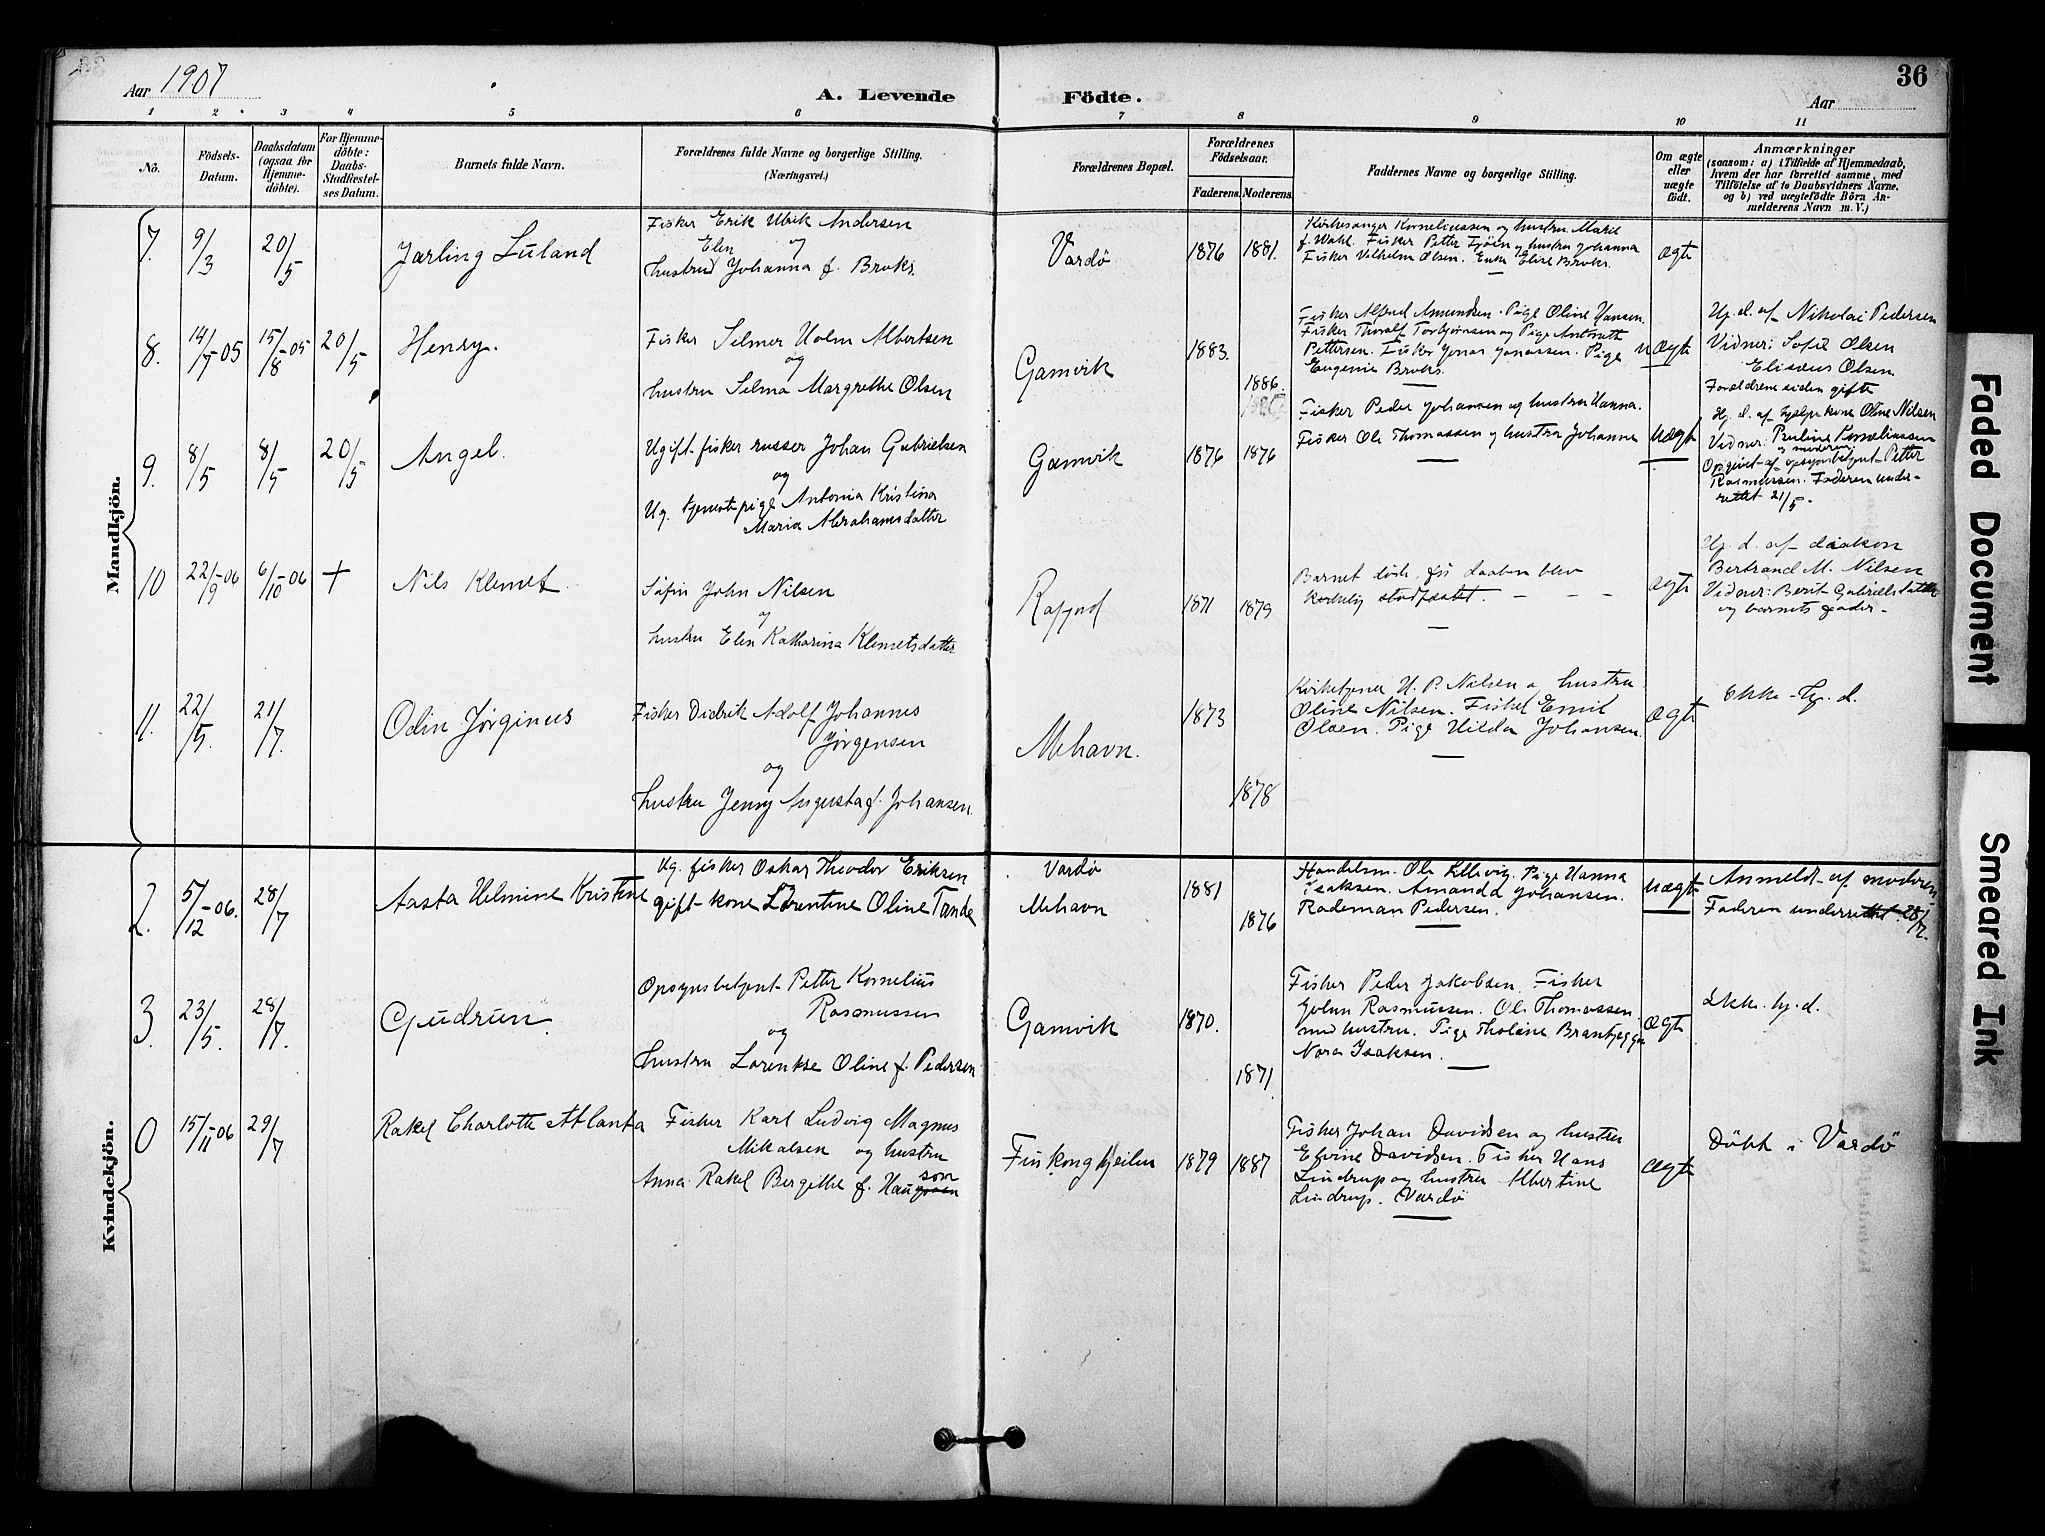 Aar 1907
A. Levende Födte.
36
Aar
1 2 3 4 5 6 7 8 9 10 11
No.
Födsels-Datum.
Daabsdatum (ogsaa for Hjemme-döbte).
For Hjemme-döbte: Daabs-Stadfæstel-ses Datum.
Barnets fulde Navn.
Forældrenes fulde Navne og borgerlige Stilling.
(Næringsvei.)
Forældrenes Bopæl.
Forældrenes Födselsaar.
Faderens. Moderens.
Faddernes Navne og borgerlige Stilling.
Om ægte eller uægte födt.
Anmærkninger
(saasom: a) i Tilfælde af Hjemmedaab,
hvem der har forrettet samme, med
Tilföielse af to Daabsvidners Navne,
og b) ved uægtefödte Börn An-
melderens Navn m. V.)
Mandkjön.
7. 9/3 20/5
Jarling Luland
Fisker Erik Ulrik Andersen
og
Elen
hustru Johanna f. Broks.
Vardø
1876 1881.
Kirkesanger Korneliussen og hustru Marie
f. Wahl. Fisker Petter Fjöln og hustru Johanna
Fisker Vilhelm Olsen. Enke Elise Broks.
ægte
8. 14/7-05 15/8-05 20/5
Henry.
Fisker Selmer Holm Albertsen
og
hustru Selma Margrethe Olsen
Gamvik
1883. 1886.
Fisker Alfred Amundsen. Pige Oline Hansen.
Fisker Thoralf Torbjørnsen og Pige
Pettersen. Fisker Jonas Jonassen. Pige
Eugenie Broks.
uægte
Hj. d. af Nikolai Pedersen
Vidner: Sofie Olsen
Elisæus Olsen
Forældrene siden gifte
9. 8/5 8/5 20/5
Angel.
Ugift fisker russer Johan Gabrielsen
og
Ug. tjenestepige Antonia Kristina
Maria Abrahamsdatter
Gamvik
1876 1876
Fisker Peder Johansen og hustru Hanna.
Fisker Ole Thomassen og hustru Johanna
uægte
Hj. d. af hjelpekone Oline Nilsen
Vidner: Pauline Korneliussen
og moderen
Opgivet af opsynsbetjent Petter
Rasmussen. Faderen under-
rettet 21/5.
10 22/9-06 6/10-06 +
Nils Klemet
Søfin John Nilsen
og
hustru Elen Katharina Klemetsdatter
1871 1879
Barnet døde før daaben blev
kirkelig stadfæstet. - - -
ægte
Hj. d. af diakon
Bertrand M. Nilsen
Vidner: Berit Gabrielsdatter
og barnets fader -
11. 22/5. 21/7.
Odin Jørginus
Fisker Didrik Adolf Johannes
Jørgensen
og
hustru Jenny Augusta f. Johansen.
Mehavn.
1873 1878
Kirketjener H. P. Nilsen og hustru
Oline Nilsen. Fisker Emil
Olsen. Pige Hilda Johansen.
ægte
Ikke hj. d.
Kvindekjön.
2. 5/12-06. 28/7
Aasta Helmine Kristine
Ug. fisker Oskar Theodor Eriksen
gift kone Lorentine Oline Tande
Vardø
Mehavn
1881 1876
Handelsm. Ole Pige Hanna
Isaksen. Amanda Johansen.
Rademan Pedersen.
uægte
Anmeldt af moderen
Faderen underrettet 28/7.
3. 23/5. 28/7.
Gudrun
Opsynsbetjent Petter Kornelius
Rasmussen
og
hustru Lorentse Oline f. Pedersen
Gamvik
1870. 1871.
Fisker Peder Jakobsen. Fisker
Johan Rasmussen. Ole Thomassen
med hustru. Pige
Nora Isaksen.
ægte
Ikke hj. d.
0 15/11-06 29/7
Rakel Charlotte Atlanta
Fisker Karl Ludvig Magnus
Mikalsen og hustru
som
Anna Rakel Bergitte f.
Finkongkeilen
1879 1887
Fisker Johan Davidsen og hustru
Elvine Davidsen. Fisker Hans
Lindrup og hustru Albertine
Lindrup. Vardø
ægte
Döbt i Vardö
Faded Document
Smeared Ink